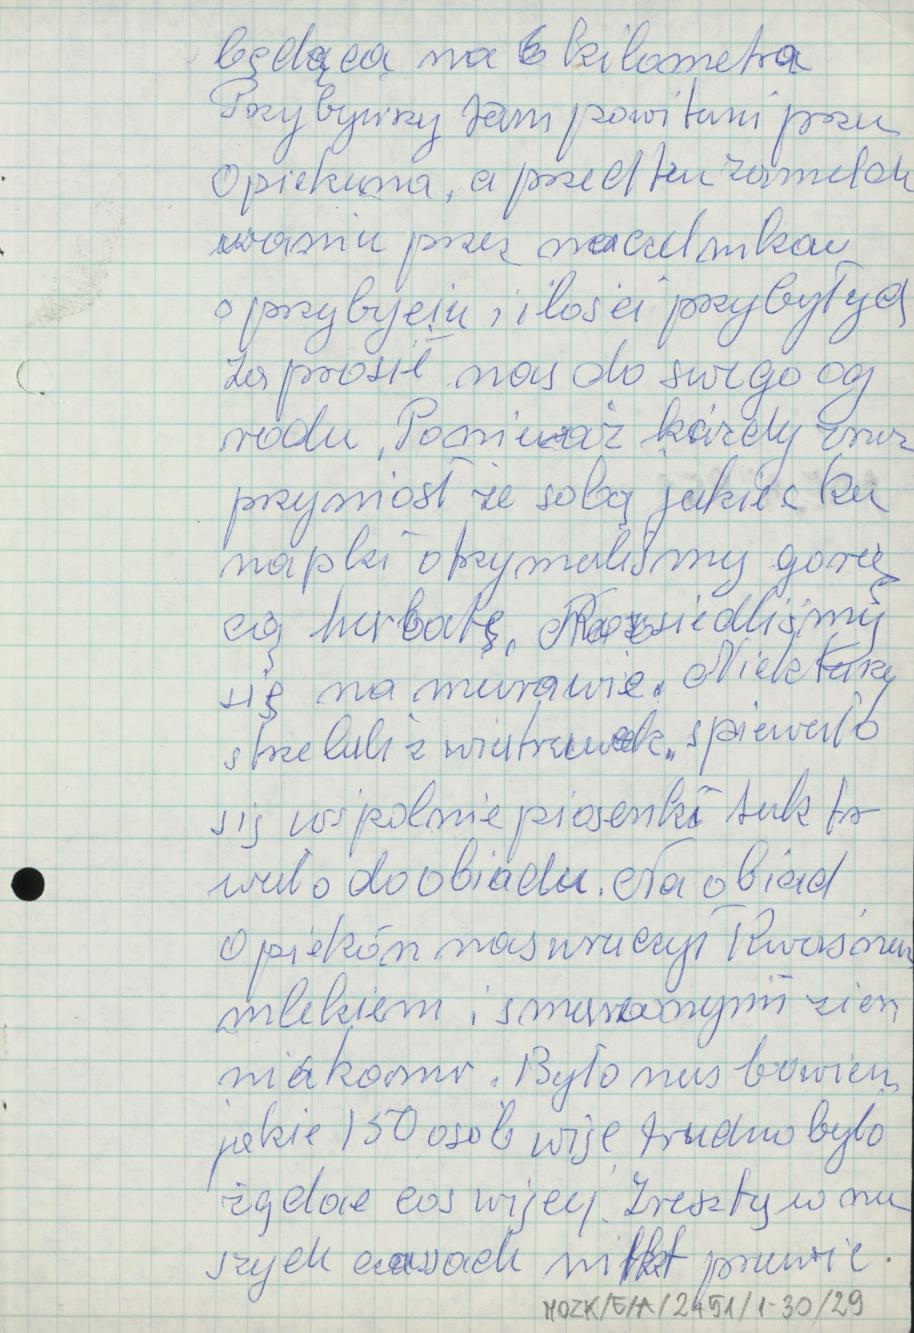 będąca na 6 kilometra
Przybywszy tam powitani przez
Opiekuna, a przed tem zameldo
waniu przez naczelnika
o przybyciu i ilości przybyłych
zaprosił nas do swego og
rodu. Ponieważ każdy z nas
przyniosł ze sobą jakieś ka
napki otrzymaliśmy gorą
cą herbatę. Rozsiedliśmy
się na murawie. Niektórzy
strzelali z wiatrówek, spiewało
się wspolnie piosenki tak tr
wało do obiadu. Na obiad
Opiekón nas uraczył Kwaśnem
mlekiem i smarzonymi ziem
niakami. Było nas bowiem
jakie 150 osób więc trudno było
żądać coś więcej. Zresztą w na
szych czasach nikt prawie.
MOZK/E/A/2451/1-30/29